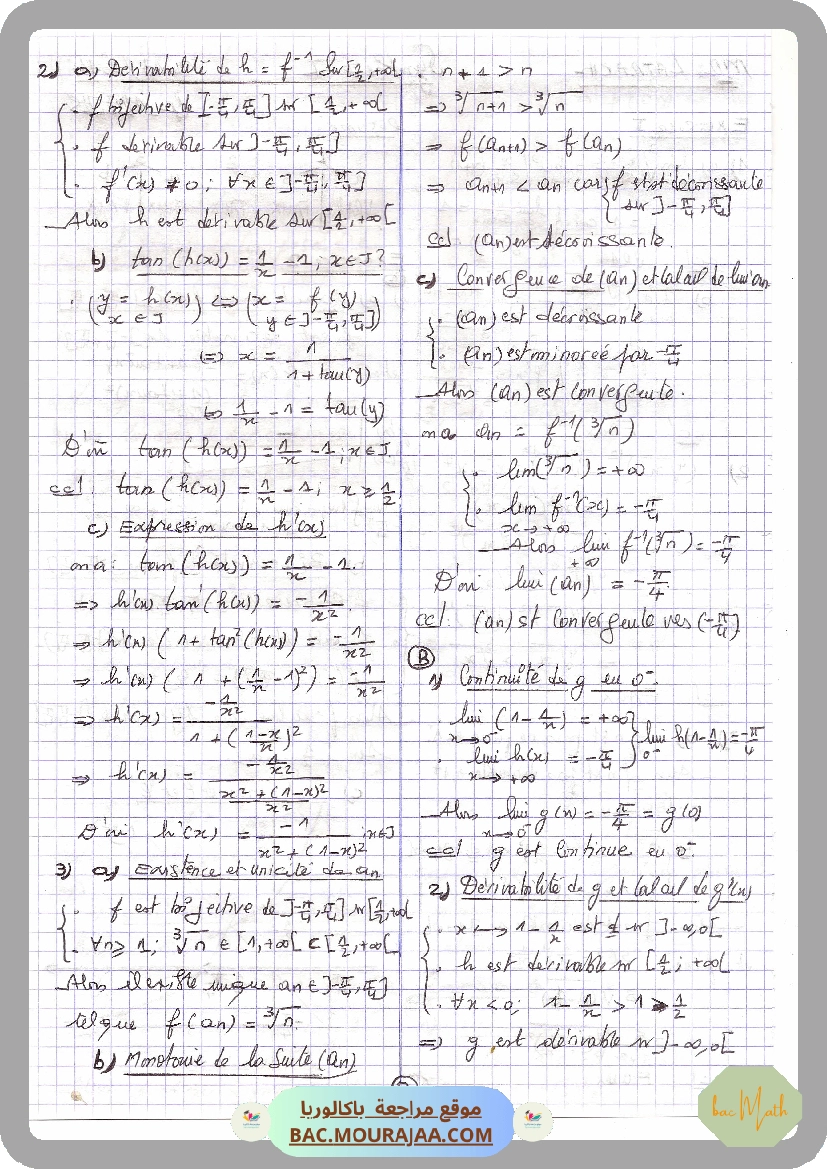 2) a) Dérivabilité de h = f⁻¹ sur [1/2, +∞[
. f bijective de ]-π/4, π/4] sr [1/2, +∞[
. f derivable sur ]-π/4, π/4]
. f'(x) ≠ 0 ; ∀x ∈ ]-π/4, π/4]
Alors h est dérivable sur [1/2, +∞[
b) tan(h(x)) = 1/x - 1 ; x ∈ J ?
. (y = h(x) ⇔ (x = f(y)
x ∈ J) y ∈ ]-π/4, π/4])
⇔ x = 1/(1+tan(y))
⇔ 1/x - 1 = tan(y)
D'où tan(h(x)) = 1/x - 1 ; x ∈ J
ccl tan(h(x)) = 1/x - 1 ; x ≥ 1/2
c) Expression de h'(x)
on a : tan(h(x)) = 1/x - 1.
⇒ h'(x) tan'(h(x)) = -1/x².
⇒ h'(x) (1 + tan²(h(x))) = -1/x²
⇒ h'(x) (1 + (1/x - 1)²) = -1/x²
⇒ h'(x) = (-1/x²)/(1 + ((1-x)/x)²)
⇒ h'(x) = (-1/x²)/((x² + (1-x)²)/x²)
D'où h'(x) = -1/(x² + (1-x)²) ; x ∈ J
3) a) Existence et unicité de an
. f est bijective de ]-π/4, π/4] sr [1/2, +∞[
. ∀n ≥ 1 ; ∛n ∈ [1, +∞[ ⊂ [1/2, +∞[
Alors il existe unique an ∈ ]-π/4, π/4]
tel que f(an) = ∛n.
b) Monotonie de la Suite (an)
. n + 1 > n
⇒ ∛(n+1) > ∛n
⇒ f(an+1) > f(an)
⇒ an+1 < an car { f st st décroissante
sur ]-π/4, π/4]
ccl (an) est décroissante.
c) Convergence de (an) et Calcul de lim an
. (an) est décroissante
. (an) est minorée par -π/4
Alors (an) est convergente.
on a an = f⁻¹(∛n)
. lim(∛n) = +∞
. lim f⁻¹(x) = -π/4
x → +∞
Alors lim f⁻¹(∛n) = -π/4
+∞
D'où lim(an) = -π/4.
ccl. (an) st Convergente vers (-π/4)
B
1) Continuité de g en 0⁻.
. lim (1 - 1/x) = +∞
x → 0⁻
. lim h(x) = -π/4 } lim h(1 - 1/x) = -π/4
x → +∞ 0⁻
Alors lim g(x) = -π/4 = g(0)
x → 0⁻
ccl g est Continue en 0⁻.
2) Dérivabilité de g et Calcul de g'(x)
. x ↦ 1 - 1/x est d sr ]-∞, 0[
. h est derivable sr [1/2 ; +∞[
. ∀x < 0 ; 1 - 1/x > 1 > 1/2
⇒ g est dérivable sr ]-∞, 0[
موقع مراجعة باكالوريا
BAC.MOURAJAA.COM
bac Math